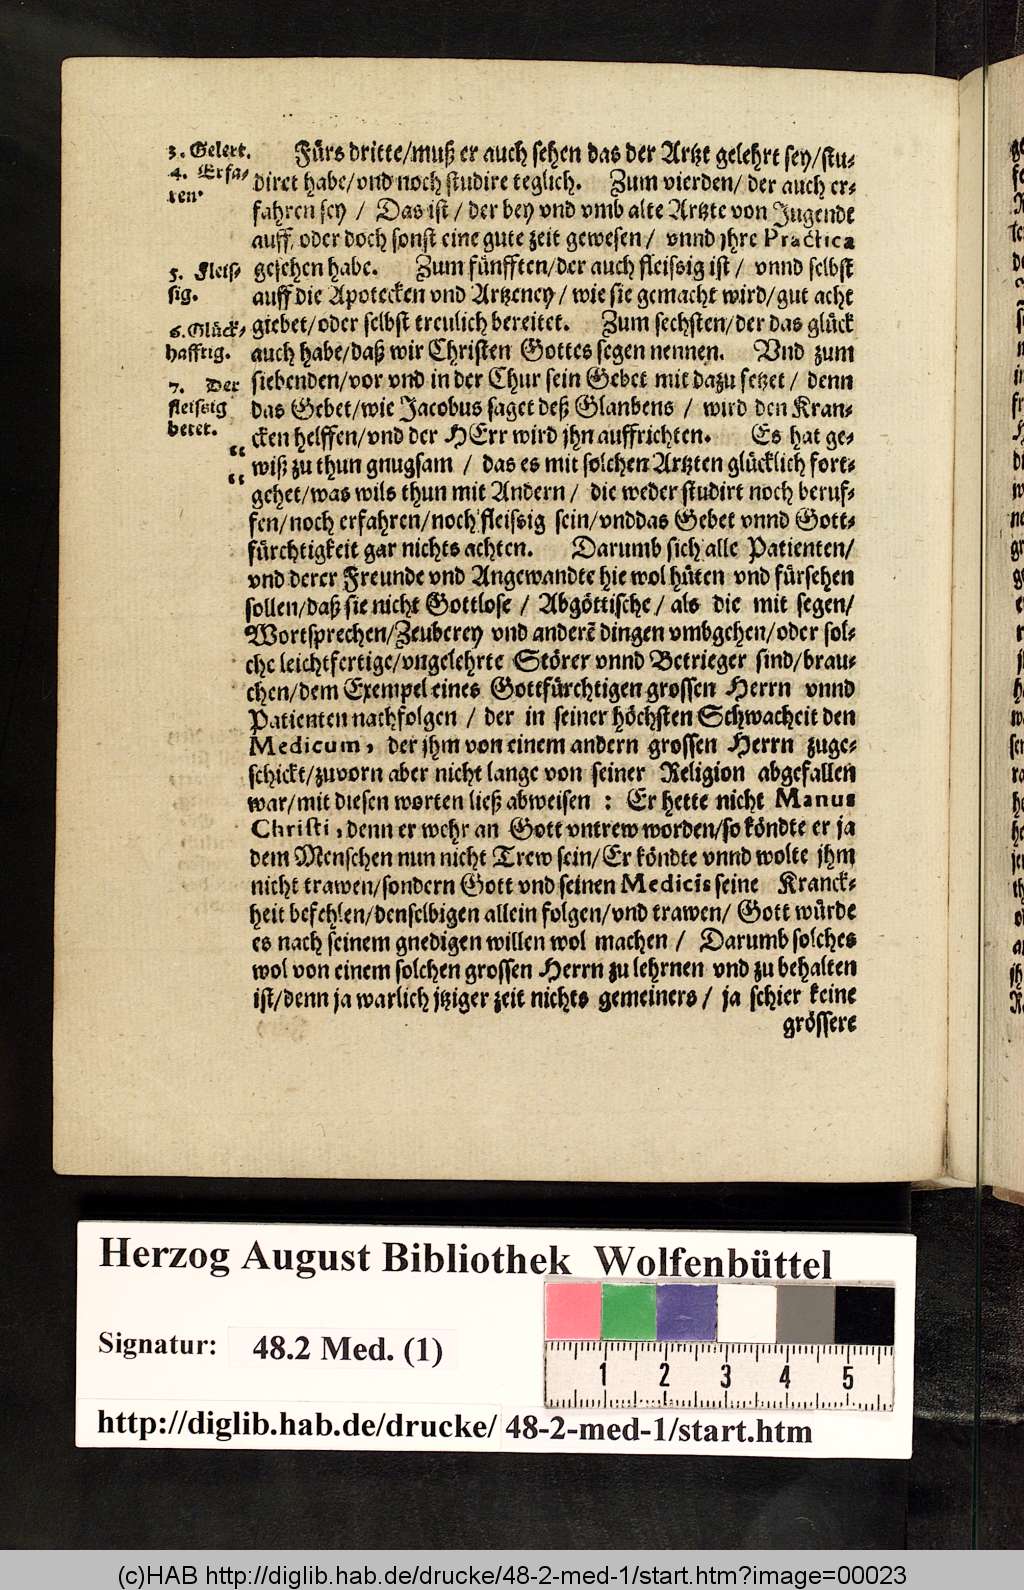 3. Gelert.
4. Erfa-
ren.
5. Fleis-
sig.
6. Glück-
hafftig.
7. Der
fleissig
betet.
Fürs dritte/muß er auch sehen das der Artzt gelehrt sey/stu-
diret habe/vnd noch studire teglich. Zum vierden/ der auch er-
fahren sey / Das ist / der bey vnd vmb alte Artzte von Jugendt
auff, oder doch sonst eine gute zeit gewesen / vnnd jhre Practica
gesehen habe. Zum fünfften/der auch fleissig ist / vnnd selbst
auff die Apotecken vnd Artzeney / wie sie gemacht wird/gut acht
giebet/oder selbst treulich bereitet. Zum sechsten/der das glück
auch habe/daß wir Christen Gottes segen nennen. Vnd zum
siebenden/vor vnd in der Chur sein Gebet mit dazu setzet / denn
das Gebet/wie Jacobus saget deß Glanbens / wird den Kran-
cken helffen/vnd der HErr wird jhn auffrichten. Es hat ge-
„ wiß zu thun gnugsam / das es mit solchen Artzten glücklich fort-
„ gehet/was wils thun mit Andern / die weder studirt noch beruf-
fen/noch erfahren/noch fleissig sein/vnddas Gebet vnnd Gott-
fürchtigkeit gar nichts achten. Darumb sich alle Patienten/
vnd derer Freunde vnd Angewandte hie wol hüten vnd fürsehen
sollen/daß sie nicht Gottlose / Abgöttische / als die mit segen/
Wortsprechen/Zeuberey vnd anderẽ dingen vmbgehen/oder sol-
che leichtfertige/vngelehrte Störer vnnd Betrieger sind/brau-
chen/dem Exempel eines Gottfürchtigen grossen Herrn vnnd
Patienten nachfolgen / der in seiner höchsten Schwacheit den
Medicum, der jhm von einem andern grossen Herrn zuge-
schickt/zuvorn aber nicht lange von seiner Religion abgefallen
war/mit diesen worten ließ abweisen : Er hette nicht Manus
Christi, denn er wehr an Gott vntrew worden/so köndte er ja
dem Menschen nun nicht Trew sein/Er köndte vnnd wolte jhm
nicht trawen/sondern Gott vnd seinen Medicis seine Kranck-
heit befehlen/denselbigen allein folgen/vnd trawen/ Gott würde
es nach seinem gnedigen willen wol machen / Darumb solches
wol von einem solchen grossen Herrn zu lehrnen vnd zu behalten
ist/denn ja warlich jtziger zeit nichts gemeiners / ja schier keine
grössere
Herzog August Bibliothek Wolfenbüttel
Signatur: 48.2 Med. (1)
1 2 3 4 5
http://diglib.hab.de/drucke/ 48-2-med-1/start.htm
(c)HAB http://diglib.hab.de/drucke/48-2-med-1/start.htm?image=00023